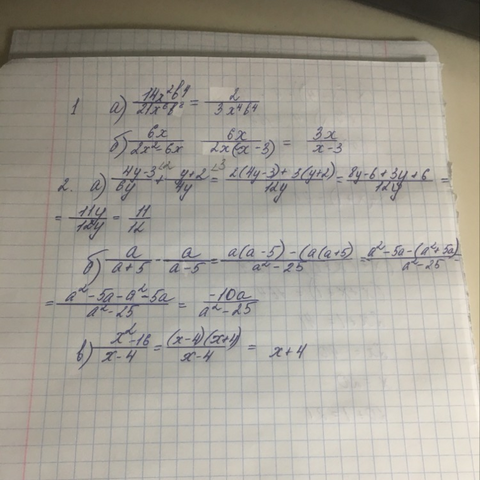 1 а) 14x²b⁴/21x⁶b⁸ = 2/3x⁴b⁴
б) 6x/2x²-6x 6x/2x(x-3) = 3x/x-3
2. а) 4y-3/6y + y+2/4y = 2(4y-3)+3(y+2)/12y = 8y-6+3y+6/12y =
= 11y/12y = 11/12
б) a/a+5 - a/a-5 = a(a-5)-(a(a+5)/a²-25 = a²-5a-(a²+5a)/a²-25 =
= a²-5a-a²-5a/a²-25 = -10a/a²-25
в) x²-16/x-4 = (x-4)(x+4)/x-4 = x+4